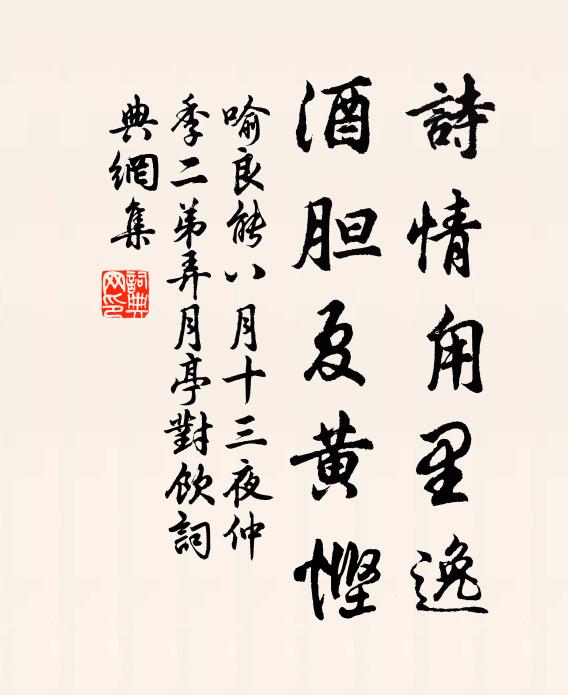 詩情甪里逸
酒胆夏黄慳
喻良能八月十三夜仲
季二弟弄月亭對飲詞
典網集
詞典
网印